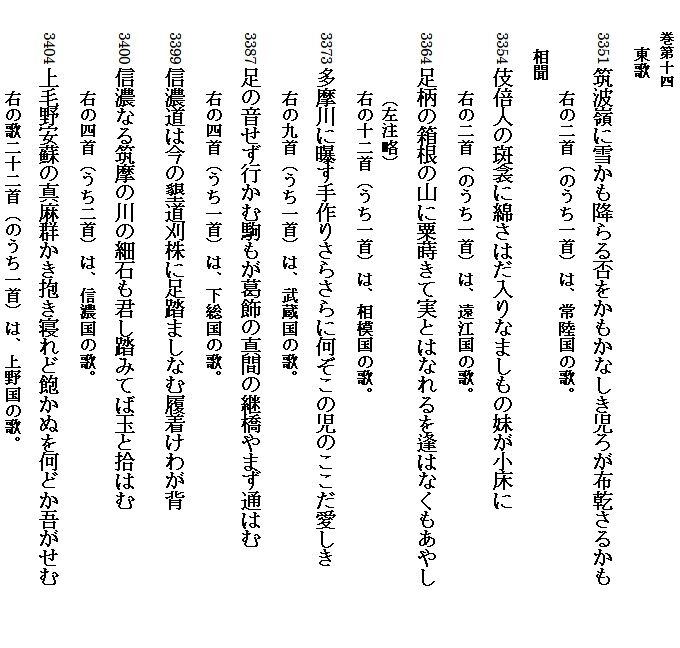 巻第十四
東歌
3351 筑波嶺に雪かも降らる否をかもかなしき児ろが布乾さるかも
右の二首（のうち一首）は、常陸国の歌。
相聞
3354 伎倍人の斑衾に綿さはだ入りなましもの妹が小床に
右の二首（のうち一首）は、遠江国の歌。
3364 足柄の箱根の山に粟蒔きて実とはなれるを逢はなくもあやし
（左注略）
右の十二首（うち一首）は、相模国の歌。
3373 多摩川に曝す手作りさらさらに何ぞこの児のここだ愛しき
右の九首（うち一首）は、武蔵国の歌。
3387 足の音せず行かむ駒もが葛飾の真間の継橋やまず通はむ
右の四首（うち一首）は、下総国の歌。
3399 信濃道は今の墾道刈株に足踏ましなむ履着けわが背
3400 信濃なる筑摩の川の細石も君し踏みてば玉と拾はむ
右の四首（うち二首）は、信濃国の歌。
3404 上毛野安蘇の真麻群かき抱き寝れど飽かぬを何どか吾がせむ
右の歌二十二首（のうち一首）は、上野国の歌。